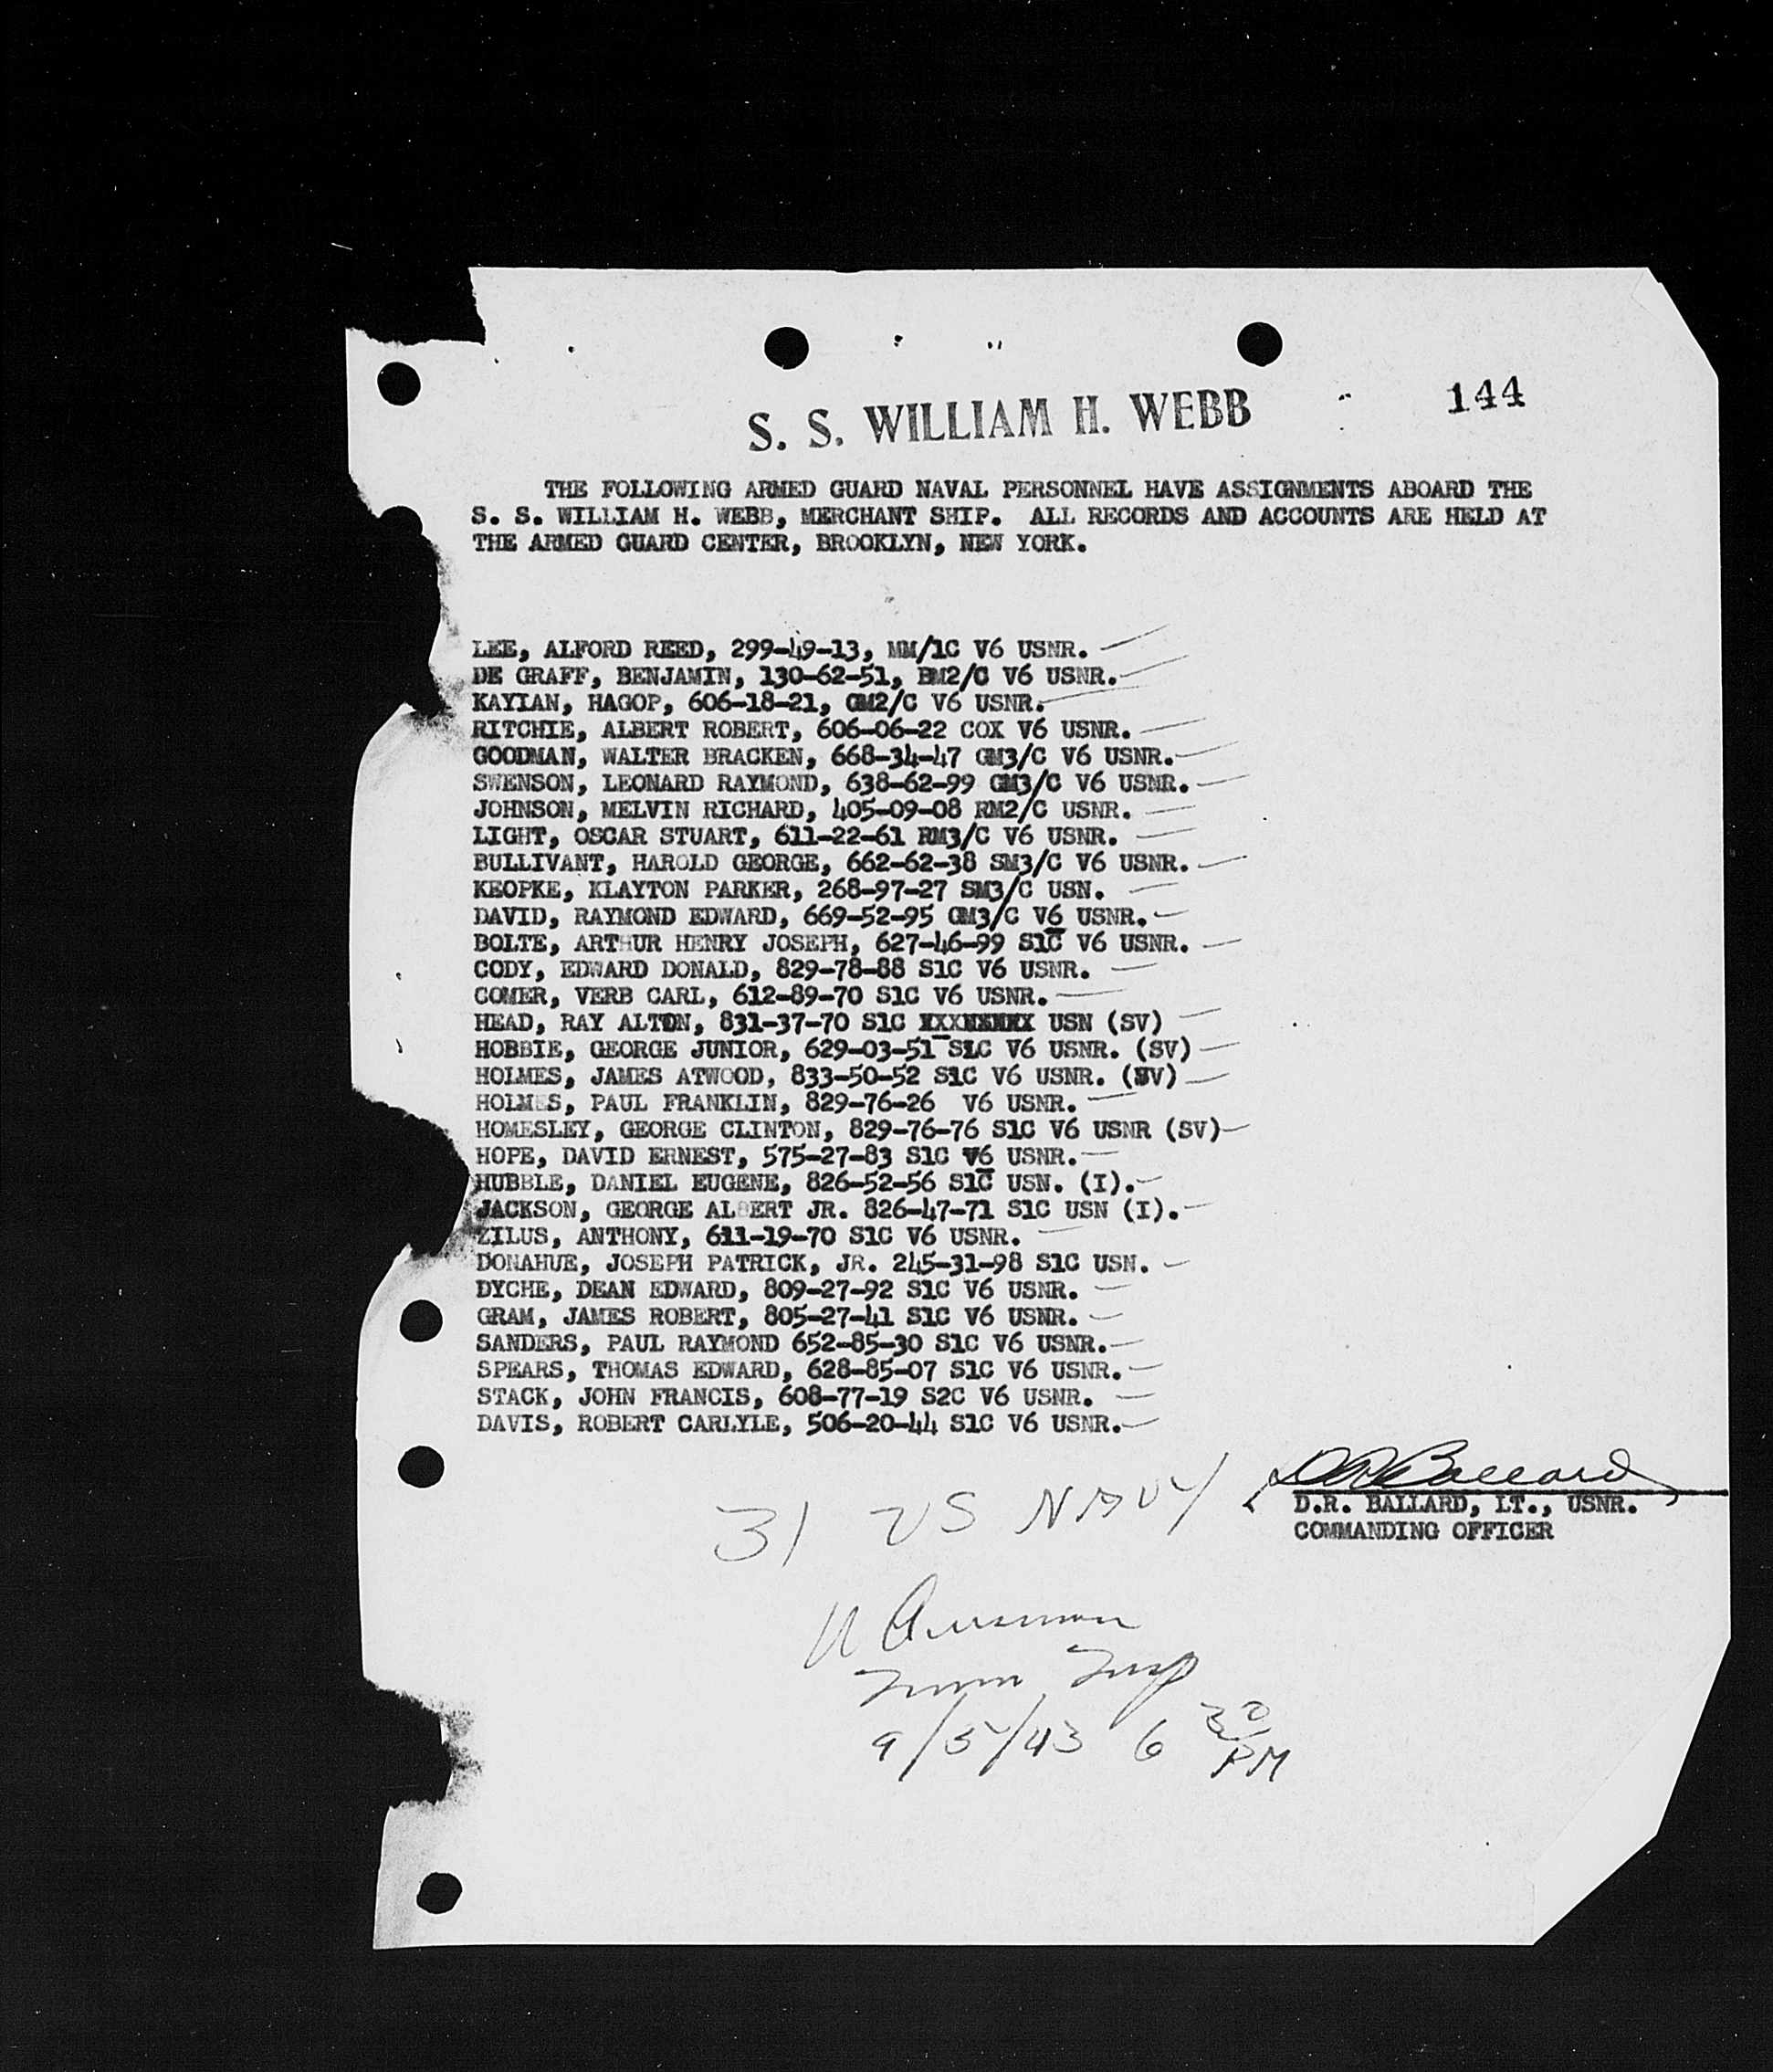 144
S. S. WILLIAM H. WEBB
THE FOLLOWING ARMED GUARD NAVAL PERSONNEL HAVE ASSIGNMENTS ABOARD THE
S. S. WILLIAM H. WEBB, MERCHANT SHIP. ALL RECORDS AND ACCOUNTS ARE HELD AT
THE ARMED GUARD CENTER, BROOKLYN, NEW YORK.
LEE, ALFORD REED, 299-49-13, MM/1C V6 USNR.
DE GRAFF, BENJAMIN, 130-62-51, BM2/C V6 USNR.
KAYIAN, HAGOP, 606-18-21, GM2/C V6 USNR.
RITCHIE, ALBERT ROBERT, 606-06-22 COX V6 USNR.
GOODMAN, WALTER BRACKEN, 668-34-47 GM3/C V6 USNR.
SWENSON, LEONARD RAYMOND, 638-62-99 GM3/C V6 USNR.
JOHNSON, MELVIN RICHARD, 405-09-08 RM2/C USNR.
LIGHT, OSCAR STUART, 611-22-61 RM3/C V6 USNR.
BULLIVANT, HAROLD GEORGE, 662-62-38 SM3/C V6 USNR.
KEOPKE, KLAYTON PARKER, 268-97-27 SM3/C USN.
DAVID, RAYMOND EDWARD, 669-52-95 GM3/C V6 USNR.
BOLTE, ARTHUR HENRY JOSEPH, 627-46-99 S1C V6 USNR.
CODY, EDWARD DONALD, 829-78-88 S1C V6 USNR.
COMER, VERB CARL, 612-89-70 S1C V6 USNR.
HEAD, RAY ALTON, 831-37-70 S1C XXXXXXXX USN (SV)
HOBBIE, GEORGE JUNIOR, 629-03-51 S1C V6 USNR. (SV)
HOLMES, JAMES ATWOOD, 833-50-52 S1C V6 USNR. (SV)
HOLMES, PAUL FRANKLIN, 829-76-26 V6 USNR.
HOMESLEY, GEORGE CLINTON, 829-76-76 S1C V6 USNR (SV)
HOPE, DAVID ERNEST, 575-27-83 S1C V6 USNR.
HUBBLE, DANIEL EUGENE, 826-52-56 S1C USN. (I).
JACKSON, GEORGE ALBERT JR. 826-47-71 S1C USN (I).
ZILUS, ANTHONY, 611-19-70 S1C V6 USNR.
DONAHUE, JOSEPH PATRICK, JR. 245-31-98 S1C USN.
DYCHE, DEAN EDWARD, 809-27-92 S1C V6 USNR.
GRAM, JAMES ROBERT, 805-27-41 S1C V6 USNR.
SANDERS, PAUL RAYMOND 652-85-30 S1C V6 USNR.
SPEARS, THOMAS EDWARD, 628-85-07 S1C V6 USNR.
STACK, JOHN FRANCIS, 608-77-19 S2C V6 USNR.
DAVIS, ROBERT CARLYLE, 506-20-44 S1C V6 USNR.
D R Ballard
D.R. BALLARD, LT., USNR.
COMMANDING OFFICER
31 US NAVY
Insp
9/5/43 6 30 PM